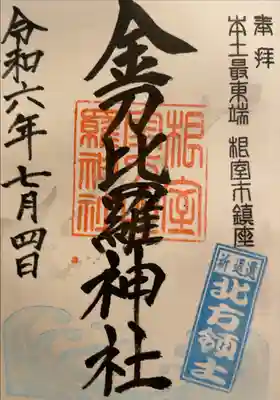 奉拝
本土最東端 根室市鎮座
金刀比羅神社
根室
令和六年七月四日
祈返還
北方領土